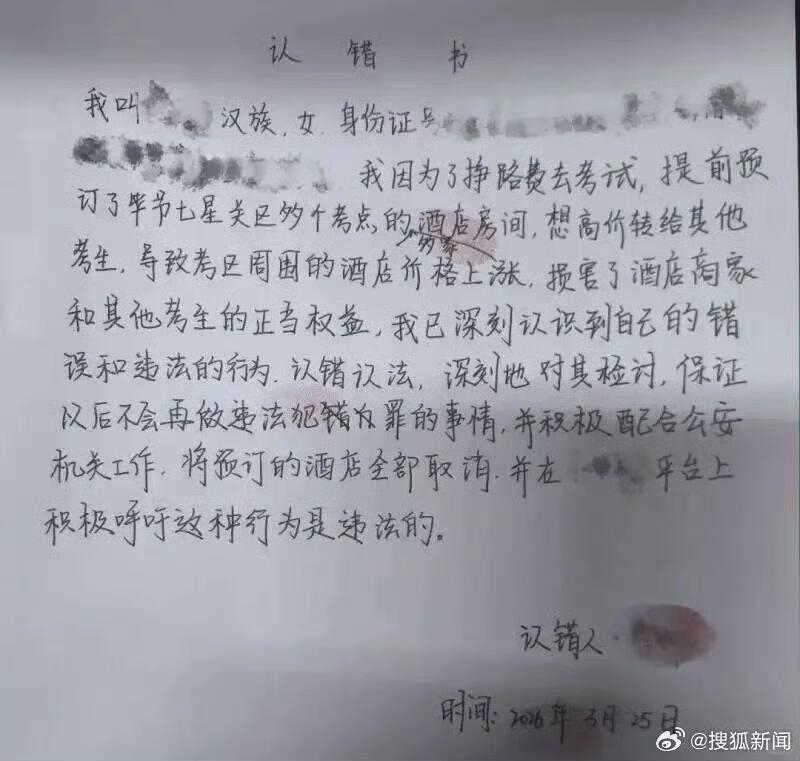 认错书
我叫 汉族,女.身份证号
我因为了挣路费去考试,提前预
订了毕节七星关区多个考点的酒店房间,想高价转给其他
多家
考生,导致考区周围的酒店价格上涨,损害了酒店商家
和其他考生的正当权益,我已深刻认识到自己的错
误和违法的行为.认错认法,深刻地对其检讨,保证
以后不会再做违法犯错 罪的事情,并积极配合公安
机关工作,将预订的酒店全部取消.并在 平台上
积极呼吁这种行为是违法的。
认错人.
时间:2026年3月25日
@搜狐新闻